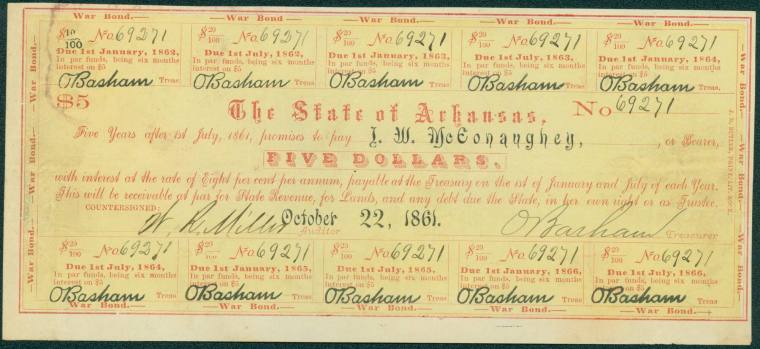 War Bond. War Bond. War Bond. War Bond. War Bond.
$10/100 No. 69271 $20/100 No. 69271 $20/100 No. 69271 $20/100 No. 69271 $20/100 No. 69271
Due 1st January, 1862, Due 1st July, 1862, Due 1st January, 1863, Due 1st July, 1863, Due 1st January, 1864,
In par funds, being six months In par funds, being six months In par funds, being six months In par funds, being six months In par funds, being six months
interest on $5 interest on $5 interest on $5 interest on $5 interest on $5
O Basham Treas O Basham Treas O Basham Treas O Basham Treas O Basham Treas
$5 The State of Arkansas, No 69271
Five Years after 1st July, 1861, promises to pay J. W. McConaughey, , or Bearer,
FIVE DOLLARS,
with interest at the rate of Eight per cent per annum, payable at the Treasury on the 1st of January and July of each Year.
This will be receivable at par for State Revenue, for Lands, and any debt due the State, in her own right or as Trustee.
COUNTERSIGNED:
W. R. Miller Auditor October 22, 1861. O Basham Treasurer
$20/100 No. 69271 $20/100 No. 69271 $20/100 No. 69271 $20/100 No. 69271 $20/100 No. 69271
Due 1st July, 1864, Due 1st January, 1865, Due 1st July, 1865, Due 1st January, 1866, Due 1st July, 1866,
In par funds, being six months In par funds, being six months In par funds, being six months In par funds, being six months In par funds, being six months
interest on $5 interest on $5 interest on $5 interest on $5 interest on $5
O Basham Treas O Basham Treas O Basham Treas O Basham Treas O Basham Treas
War Bond. War Bond. War Bond. War Bond. War Bond.
War Bond. War Bond. War Bond. War Bond.
War Bond. War Bond. War Bond. War Bond.